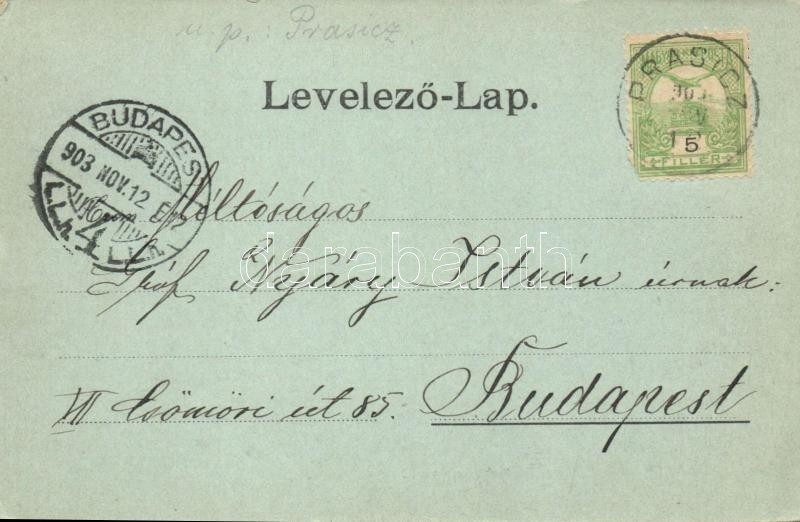 u. p.: Prasicz
Levelező-Lap.
PRASICZ
903
5
FILLER
BUDAPEST
903 NOV. 12
4
Méltóságos
Gróf Nyáry István úrnak:
VII Csömöri út 85. Budapest
darabanth